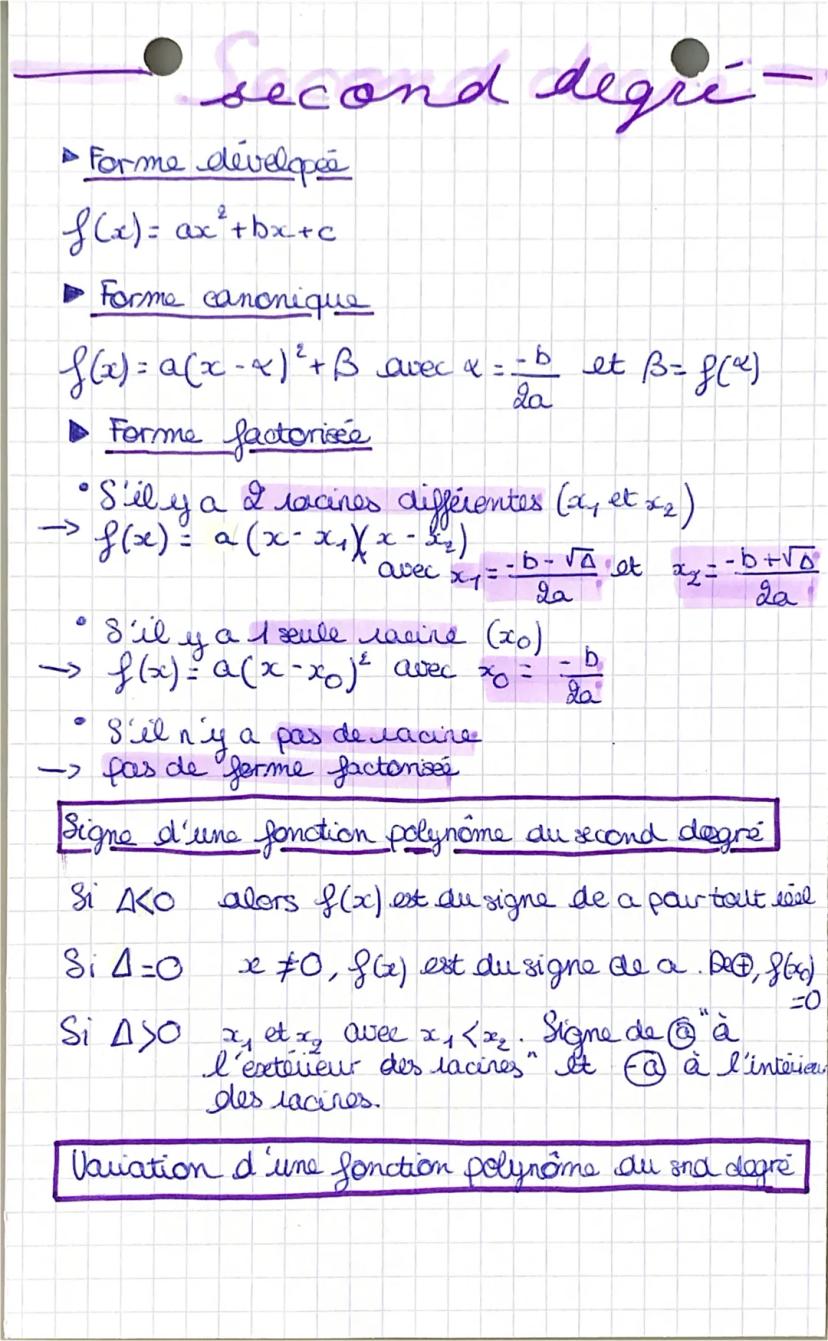 second degré
Forme dévelopée
f(x) = ax²+bx+c
Forme canonique
f(x) = a(x - α)² + β avec α = -b/2a et β = f(α)
Forme factorisée
• S'il y a 2 racines différentes (x₁ et x₂)
→ f(x) = a(x - x₁)(x - x₂)
avec x₁ = -b - √Δ/2a et x₂ = -b + √Δ/2a
• S'il y a 1 seule racine (x₀)
→ f(x) = a(x - x₀)² avec x₀ = -b/2a
• S'il n'y a pas de racine
→ pas de forme factorisée
Signe d'une fonction polynôme du second degré
Si Δ<0 alors f(x) est du signe de a pour tout réel
Si Δ=0 x ≠ 0, f(x) est du signe de a. De ⊕, f(x₀)
=0
Si Δ>0 x₁ et x₂ avec x₁ < x₂. Signe de a "à
l'extérieur des racines" et -a à l'intérieur
des racines.
Variation d'une fonction polynôme du snd degré